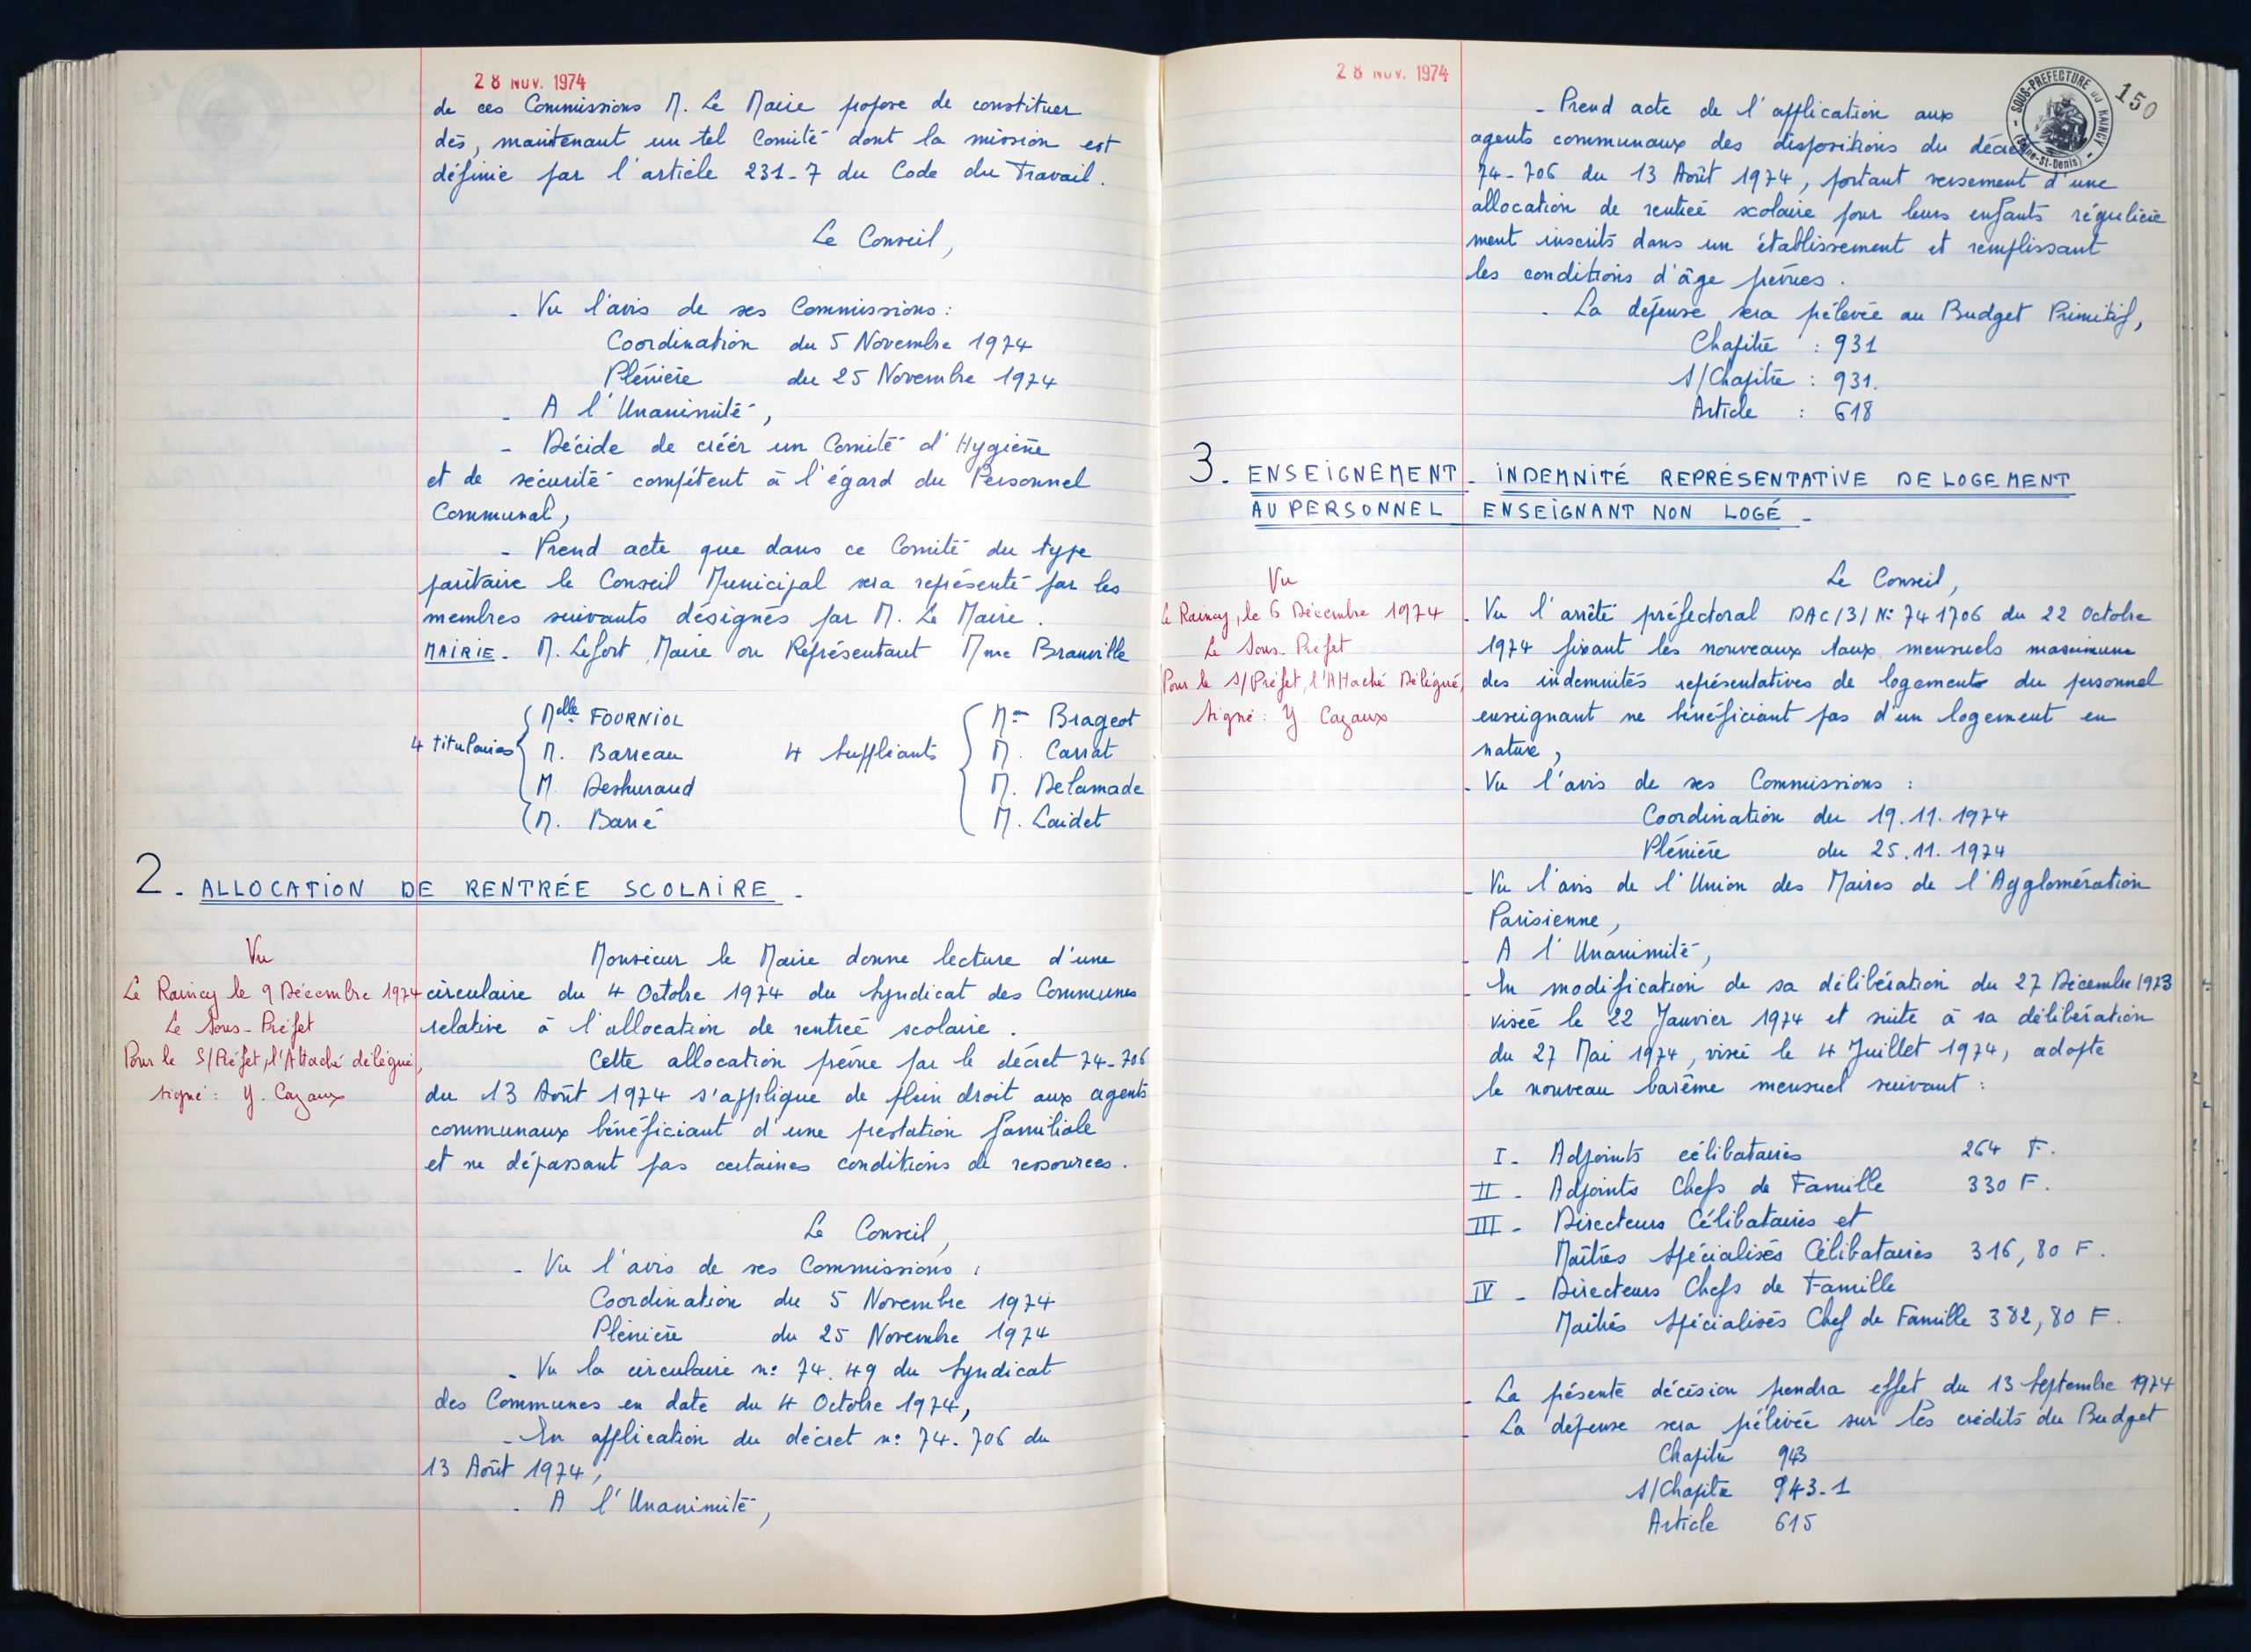 28 NOV. 1974
de ces Commissions M. Le Maire propose de constituer
dès, maintenant un tel Comité dont la mission est
définie par l'article 231-7 du Code du Travail.
Le Conseil,
- Vu l'avis de ses Commissions :
Coordination du 5 Novembre 1974
Plénière du 25 Novembre 1974
- A l'Unanimité,
- Décide de créér un Comité d'Hygiène
et de sécurité compétent à l'égard du Personnel
Communal,
- Prend acte que dans ce Comité du type
paritaire le Conseil Municipal sera représenté par les
membres suivants désignés par M. Le Maire.
MAIRIE. M. Lefort Maire ou Représentant Mme Branville
4 titulaires
Melle FOURNIOL
M. Barreau
M Deshuraud
M. Barré
4 Suppléants
Mme Brageot
M. Carrat
M. Delamade
M. Laidet
2. ALLOCATION DE RENTRÉE SCOLAIRE -
Vu
Le Raincy le 9 Décembre 1974
Le Sous-Préfet
Pour le S/Préfet, l'Attaché délégué,
signé : Y. Cazaux
Monsieur le Maire donne lecture d'une
circulaire du 4 Octobre 1974 du Syndicat des Communes
relative à l'allocation de rentrée scolaire.
Cette allocation prévue par le décret 74-706
du 13 Août 1974 s'applique de plein droit aux agents
communaux bénéficiant d'une prestation familiale
et ne dépassant pas certaines conditions de ressources.
Le Conseil,
- Vu l'avis de ses Commissions :
Coordination du 5 Novembre 1974
Plénière du 25 Novembre 1974
- Vu la circulaire n: 74.49 du Syndicat
des Communes en date du 4 Octobre 1974,
- En application du décret n: 74.706 du
13 Août 1974,
- A l'Unanimité,
28 NOV. 1974
150
SOUS-PREFECTURE DU RAINCY
(Seine-St-Denis)
- Prend acte de l'application aux
agents communaux des dispositions du décret
74-706 du 13 Août 1974, portant versement d'une
allocation de rentrée scolaire pour leurs enfants régulière
ment inscrits dans un établissement et remplissant
les conditions d'âge prévues.
- La dépense sera prélevée au Budget Primitif,
Chapitre : 931
S/Chapitre : 931.
Article : 618
3. ENSEIGNEMENT - INDEMNITÉ REPRÉSENTATIVE DE LOGEMENT
AU PERSONNEL ENSEIGNANT NON LOGÉ -
Vu
Le Raincy, le 6 Décembre 1974
Le Sous-Préfet
Pour le S/Préfet, l'Attaché Délégué,
Signé : Y Cazaux
Le Conseil,
- Vu l'arrêté préfectoral DAC/3/ N: 74 1706 du 22 Octobre
1974 fixant les nouveaux taux mensuels maximum
des indemnités représentatives de logements du personnel
enseignant ne bénéficiant pas d'un logement en
nature,
- Vu l'avis de ses Commissions :
Coordination du 19.11.1974
Plénière du 25.11.1974
- Vu l'avis de l'Union des Maires de l'Agglomération
Parisienne,
- A l'Unanimité,
- En modification de sa délibération du 27 Décembre 1973
visée le 22 Janvier 1974 et suite à sa délibération
du 27 Mai 1974, visée le 4 Juillet 1974, adopte
le nouveau barème mensuel suivant :
I - Adjoints célibataires 264 F.
II - Adjoints Chefs de Famille 330 F.
III - Directeurs Célibataires et
Maîtres Spécialisés Célibataires 316,80 F.
IV - Directeurs Chefs de Famille
Maîtres Spécialisés Chef de Famille 382,80 F.
- La présente décision prendra effet du 13 Septembre 1974
- La dépense sera prélevée sur les crédits du Budget
Chapitre 943
S/Chapitre 943-1
Article 615